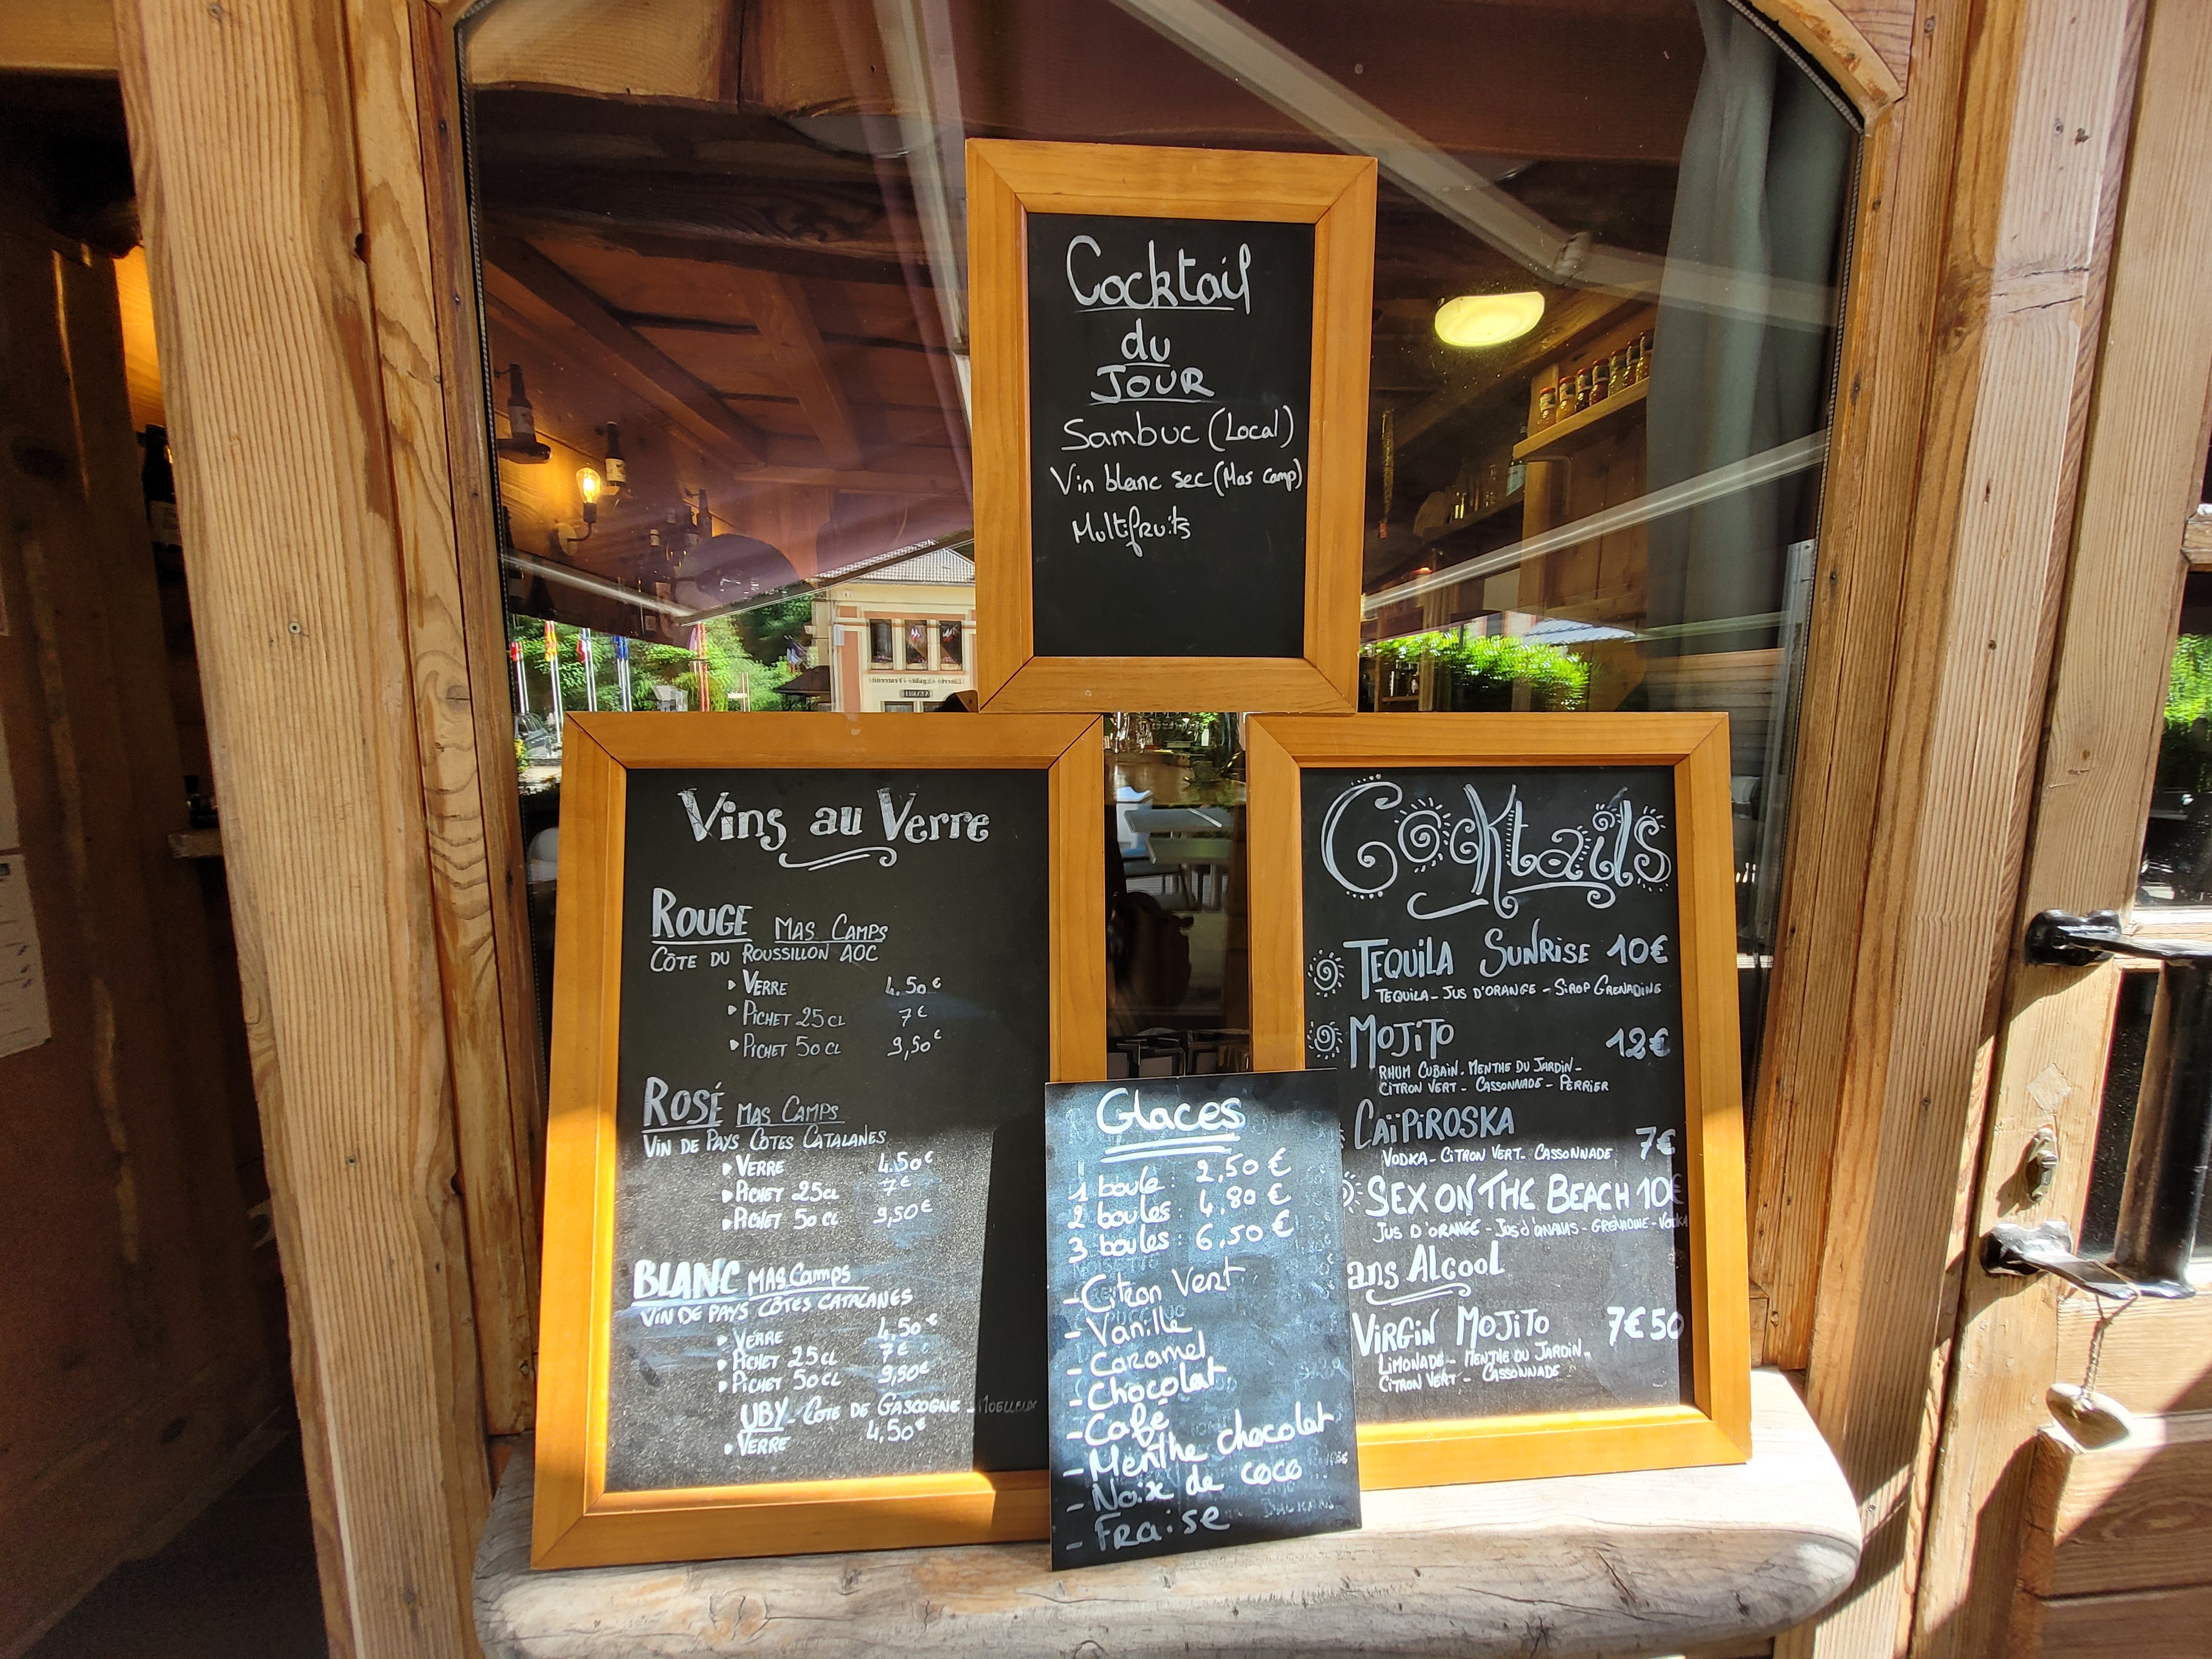 Cocktail
du
JOUR
Sambuc (Local)
Vin blanc sec (Mas Camp)
Multifruits
Vins au Verre
ROUGE MAS CAMPS
CÔTE DU ROUSSILLON AOC
VERRE 4.50€
PICHET 25CL 7€
PICHET 50 CL 9,50€
ROSÉ MAS CAMPS
VIN DE PAYS COTES CATALANES
VERRE 4.50€
PICHET 25CL 7€
PICHET 50 CL 9,50€
BLANC MAS Camps
VIN DE PAYS CÔTES CATALANES
VERRE 4.50€
PICHET 25CL 7€
PICHET 50CL 9,50€
UBY - COTE DE GASCOGNE - MOELLEUX
VERRE 4,50€
Glaces
1 boule : 2,50 €
2 boules : 4,80 €
3 boules : 6,50 €
- Citron Vert
- Vanille
- Caramel
- Chocolat
- Café
- Menthe chocolat
- Noix de coco
- Fraise
Cocktails
TEQUILA SUNRISE 10€
TEQUILA - JUS D'ORANGE - SIROP GRENADINE
MOJITO 12€
RHUM CUBAIN - MENTHE DU JARDIN -
CITRON VERT - CASSONNADE - PERRIER
CAÏPIROSKA 7€
VODKA - CITRON VERT - CASSONNADE
SEX ON THE BEACH 10€
JUS D'ORANGE - JUS D'ANANAS - GRENADINE - VODKA
ans Alcool
VIRGIN MOJITO 7€50
LIMONADE - MENTHE DU JARDIN -
CITRON VERT - CASSONNADE